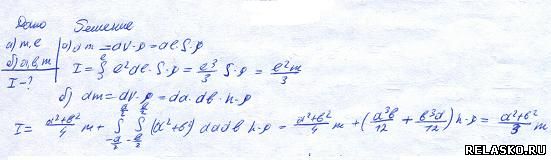 Дано Решение
а) m, ℓ а) dm = dv·ρ = dℓ·S·ρ
б) a, b, m I = ∫₀^ℓ ℓ² dℓ·S·ρ = ℓ³/3 S·ρ = ℓ²m/3
I - ? б) dm = dv·ρ = da·db·h·ρ
I = (a²+b²)/4 m + ∫_{-a/2}^{a/2} ∫_{-b/2}^{b/2} (a²+b²) da db h·ρ = (a²+b²)/4 m + (a³b/12 + b³a/12) h·ρ = (a²+b²)/3 m
RELASKO.RU